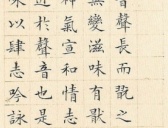 聲長而翫之
無變滋味有猒
氣宣和情志
於聲音也是
以肆志吟詠